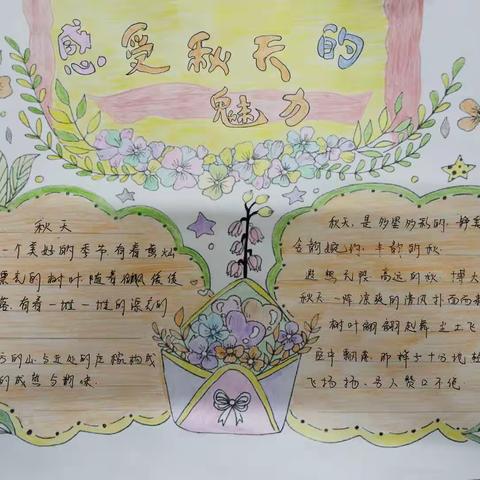 感受秋天的
魅力
秋天
一个美好的季节有着黄灿
漂亮的树叶随着缓缓
落.有着一堆一堆的漂亮的
方的山与近处的庄稼构成
的成熟与韵味.
秋天,是多姿多彩的.静美
含韵婉约.丰韵的秋.
遐想无限 高远的秋 博大
秋天一阵凉爽的清风扑面而
树叶翩翩起舞 尘土飞
空中翻腾.那样子十分
飞扬扬.另人赞口不绝.